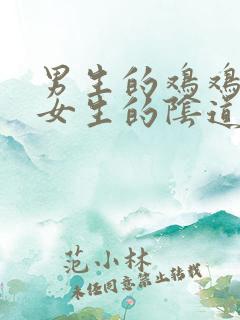 男生的鸡鸡
女生的陰道
范小林
未经同意禁止转载